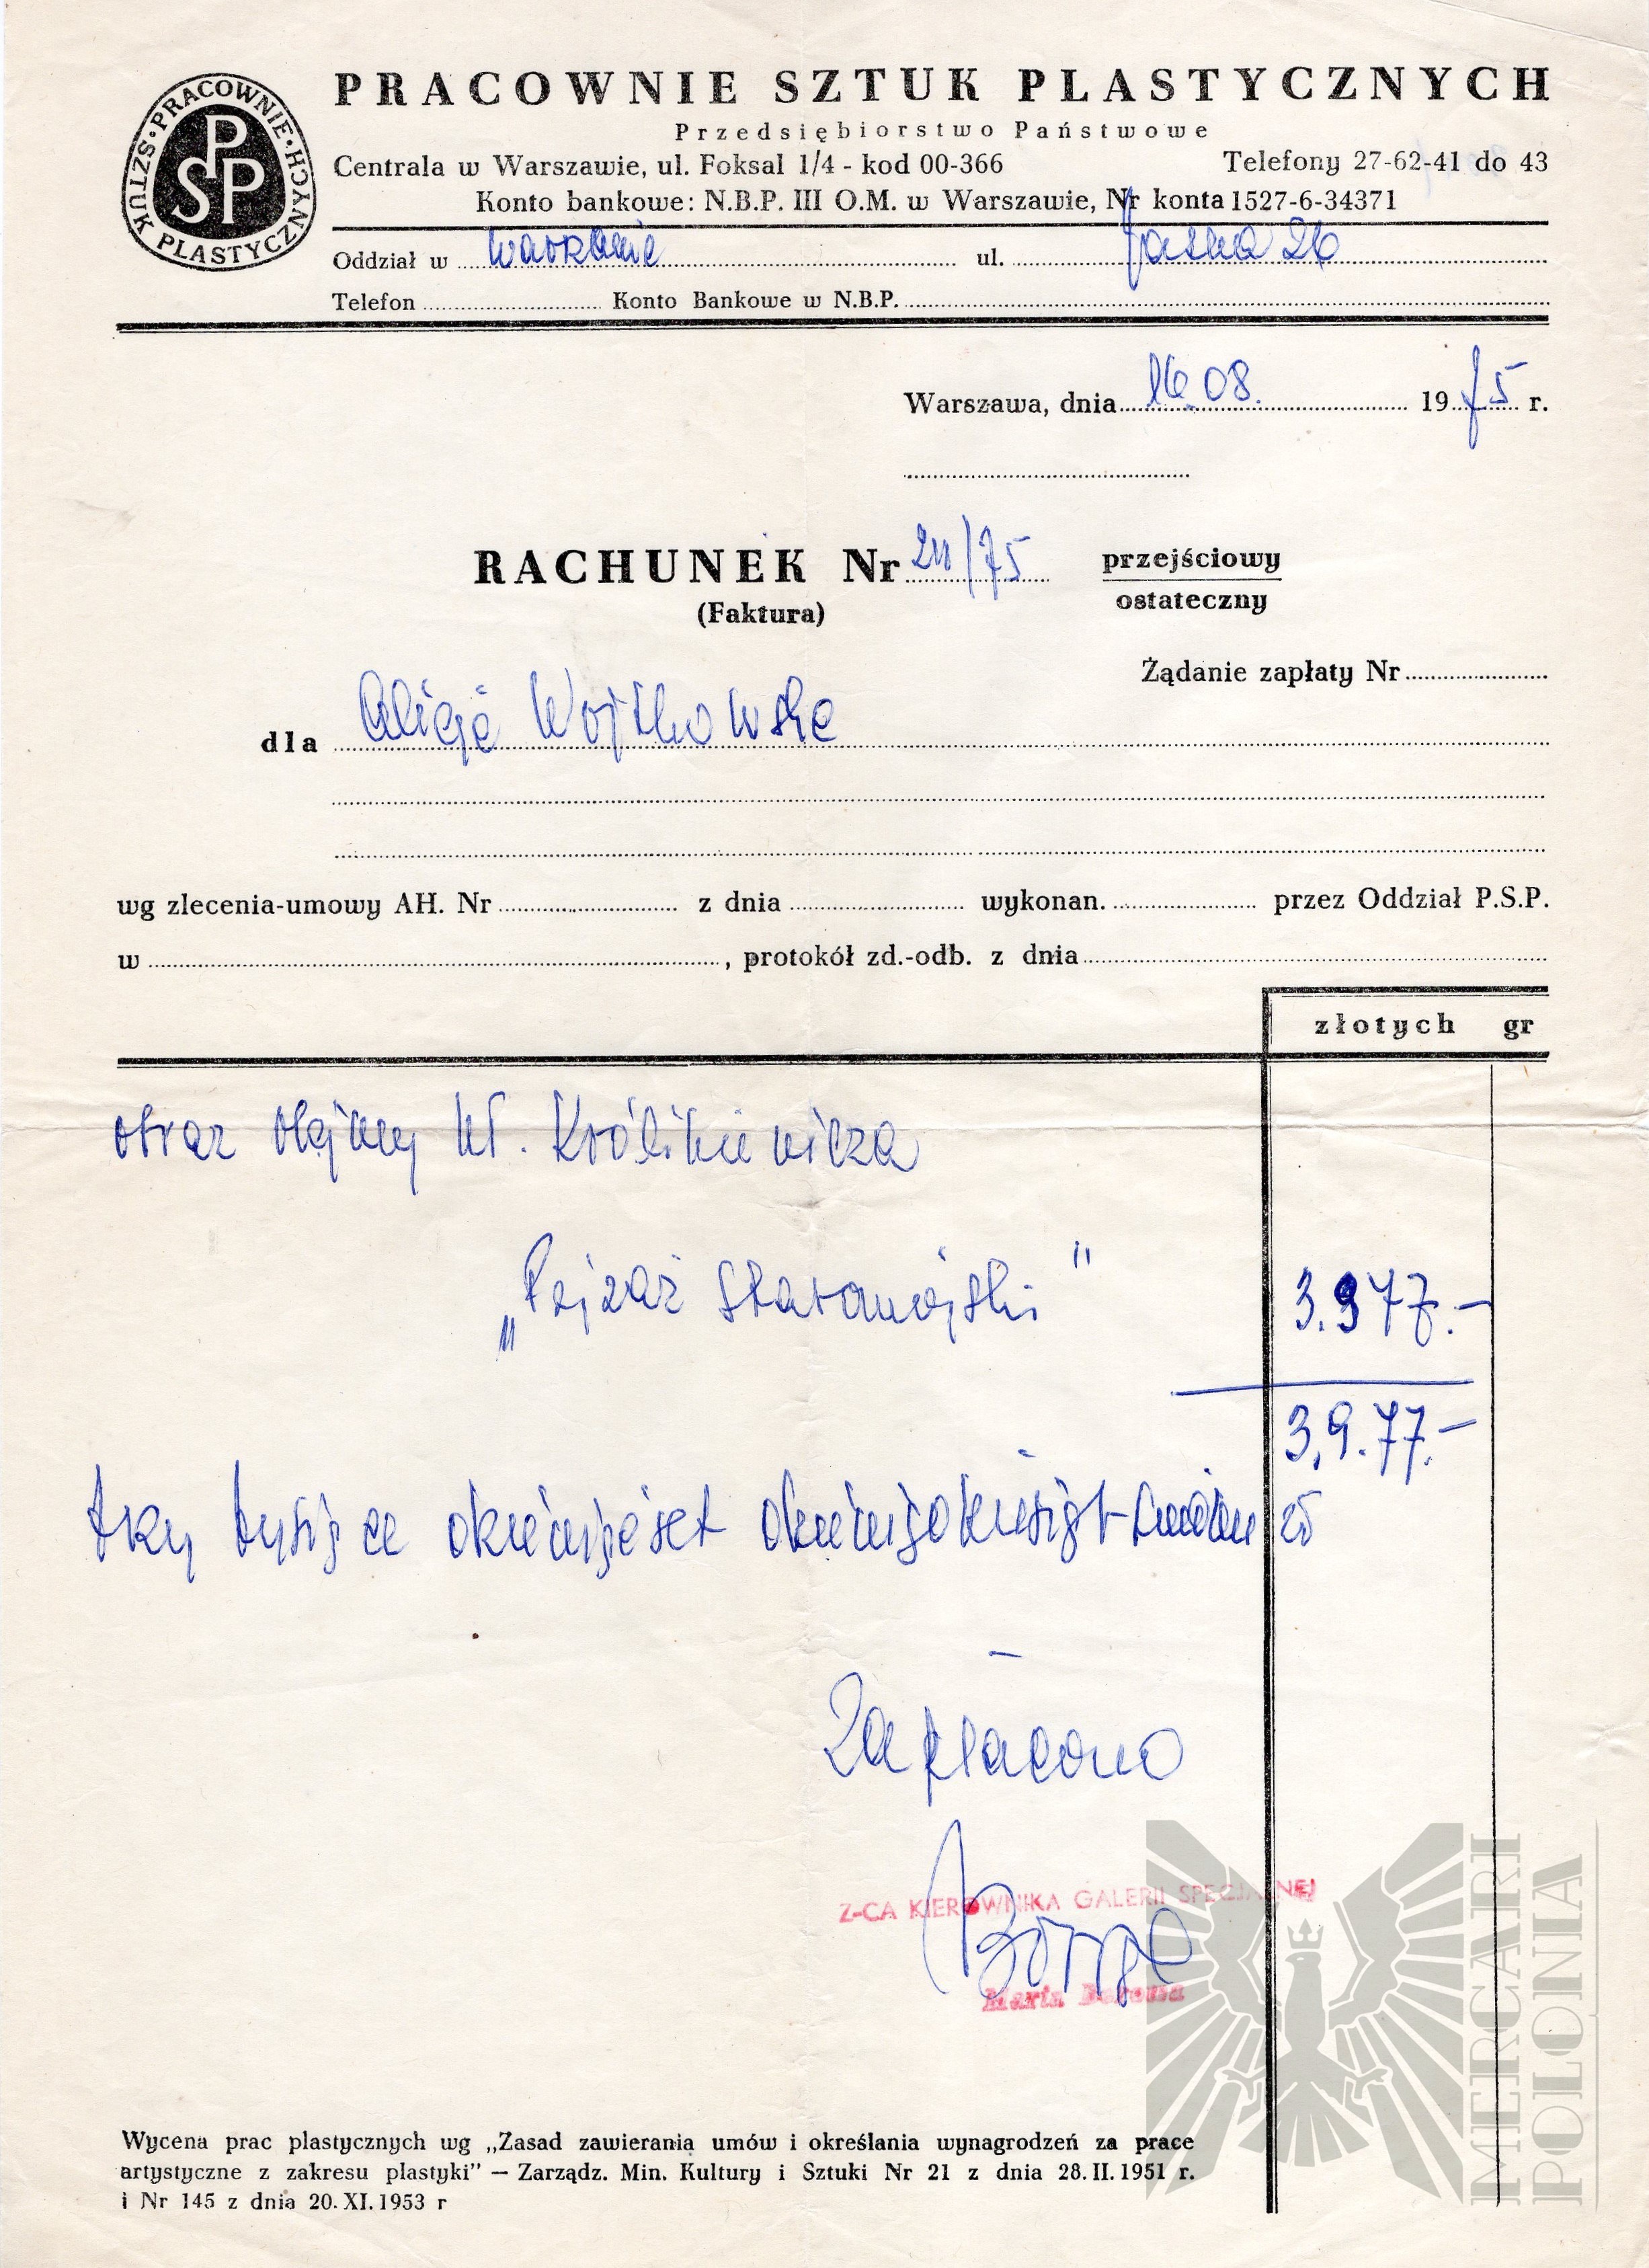 PRACOWNIE SZTUK PLASTYCZNYCH
PSP
PRACOWNIE SZTUK PLASTYCZNYCH
Przedsiębiorstwo Państwowe
Centrala w Warszawie, ul. Foksal 1/4 - kod 00-366 Telefony 27-62-41 do 43
Konto bankowe: N.B.P. III O.M. w Warszawie, Nr konta 1527-6-34371
Oddział w Warszawie ul. Jasna 26
Telefon Konto Bankowe w N.B.P.
Warszawa, dnia 16.08. 1975 r.
RACHUNEK Nr /75 przejściowy
(Faktura) ostateczny
Żądanie zapłaty Nr
dla Alicja Wojtkowska
wg zlecenia-umowy AH. Nr z dnia wykonan. przez Oddział P.S.P.
w , protokół zd.-odb. z dnia
złotych gr
obraz olejny Wł. Królikiewicza
„Pejzaż Staromiejski" 3.977.-
3.9.77.-
trzy tysiące dziewięćset dziewięćdziesiąt siedem zł
Zapłacono
Z-CA KIEROWNIKA GALERII SPECJALNEJ
Maria
MERCARI
POLONIA
Wycena prac plastycznych wg „Zasad zawierania umów i określania wynagrodzeń za prace
artystyczne z zakresu plastyki" — Zarządz. Min. Kultury i Sztuki Nr 21 z dnia 28.II.1951 r.
i Nr 145 z dnia 20.XI.1953 r